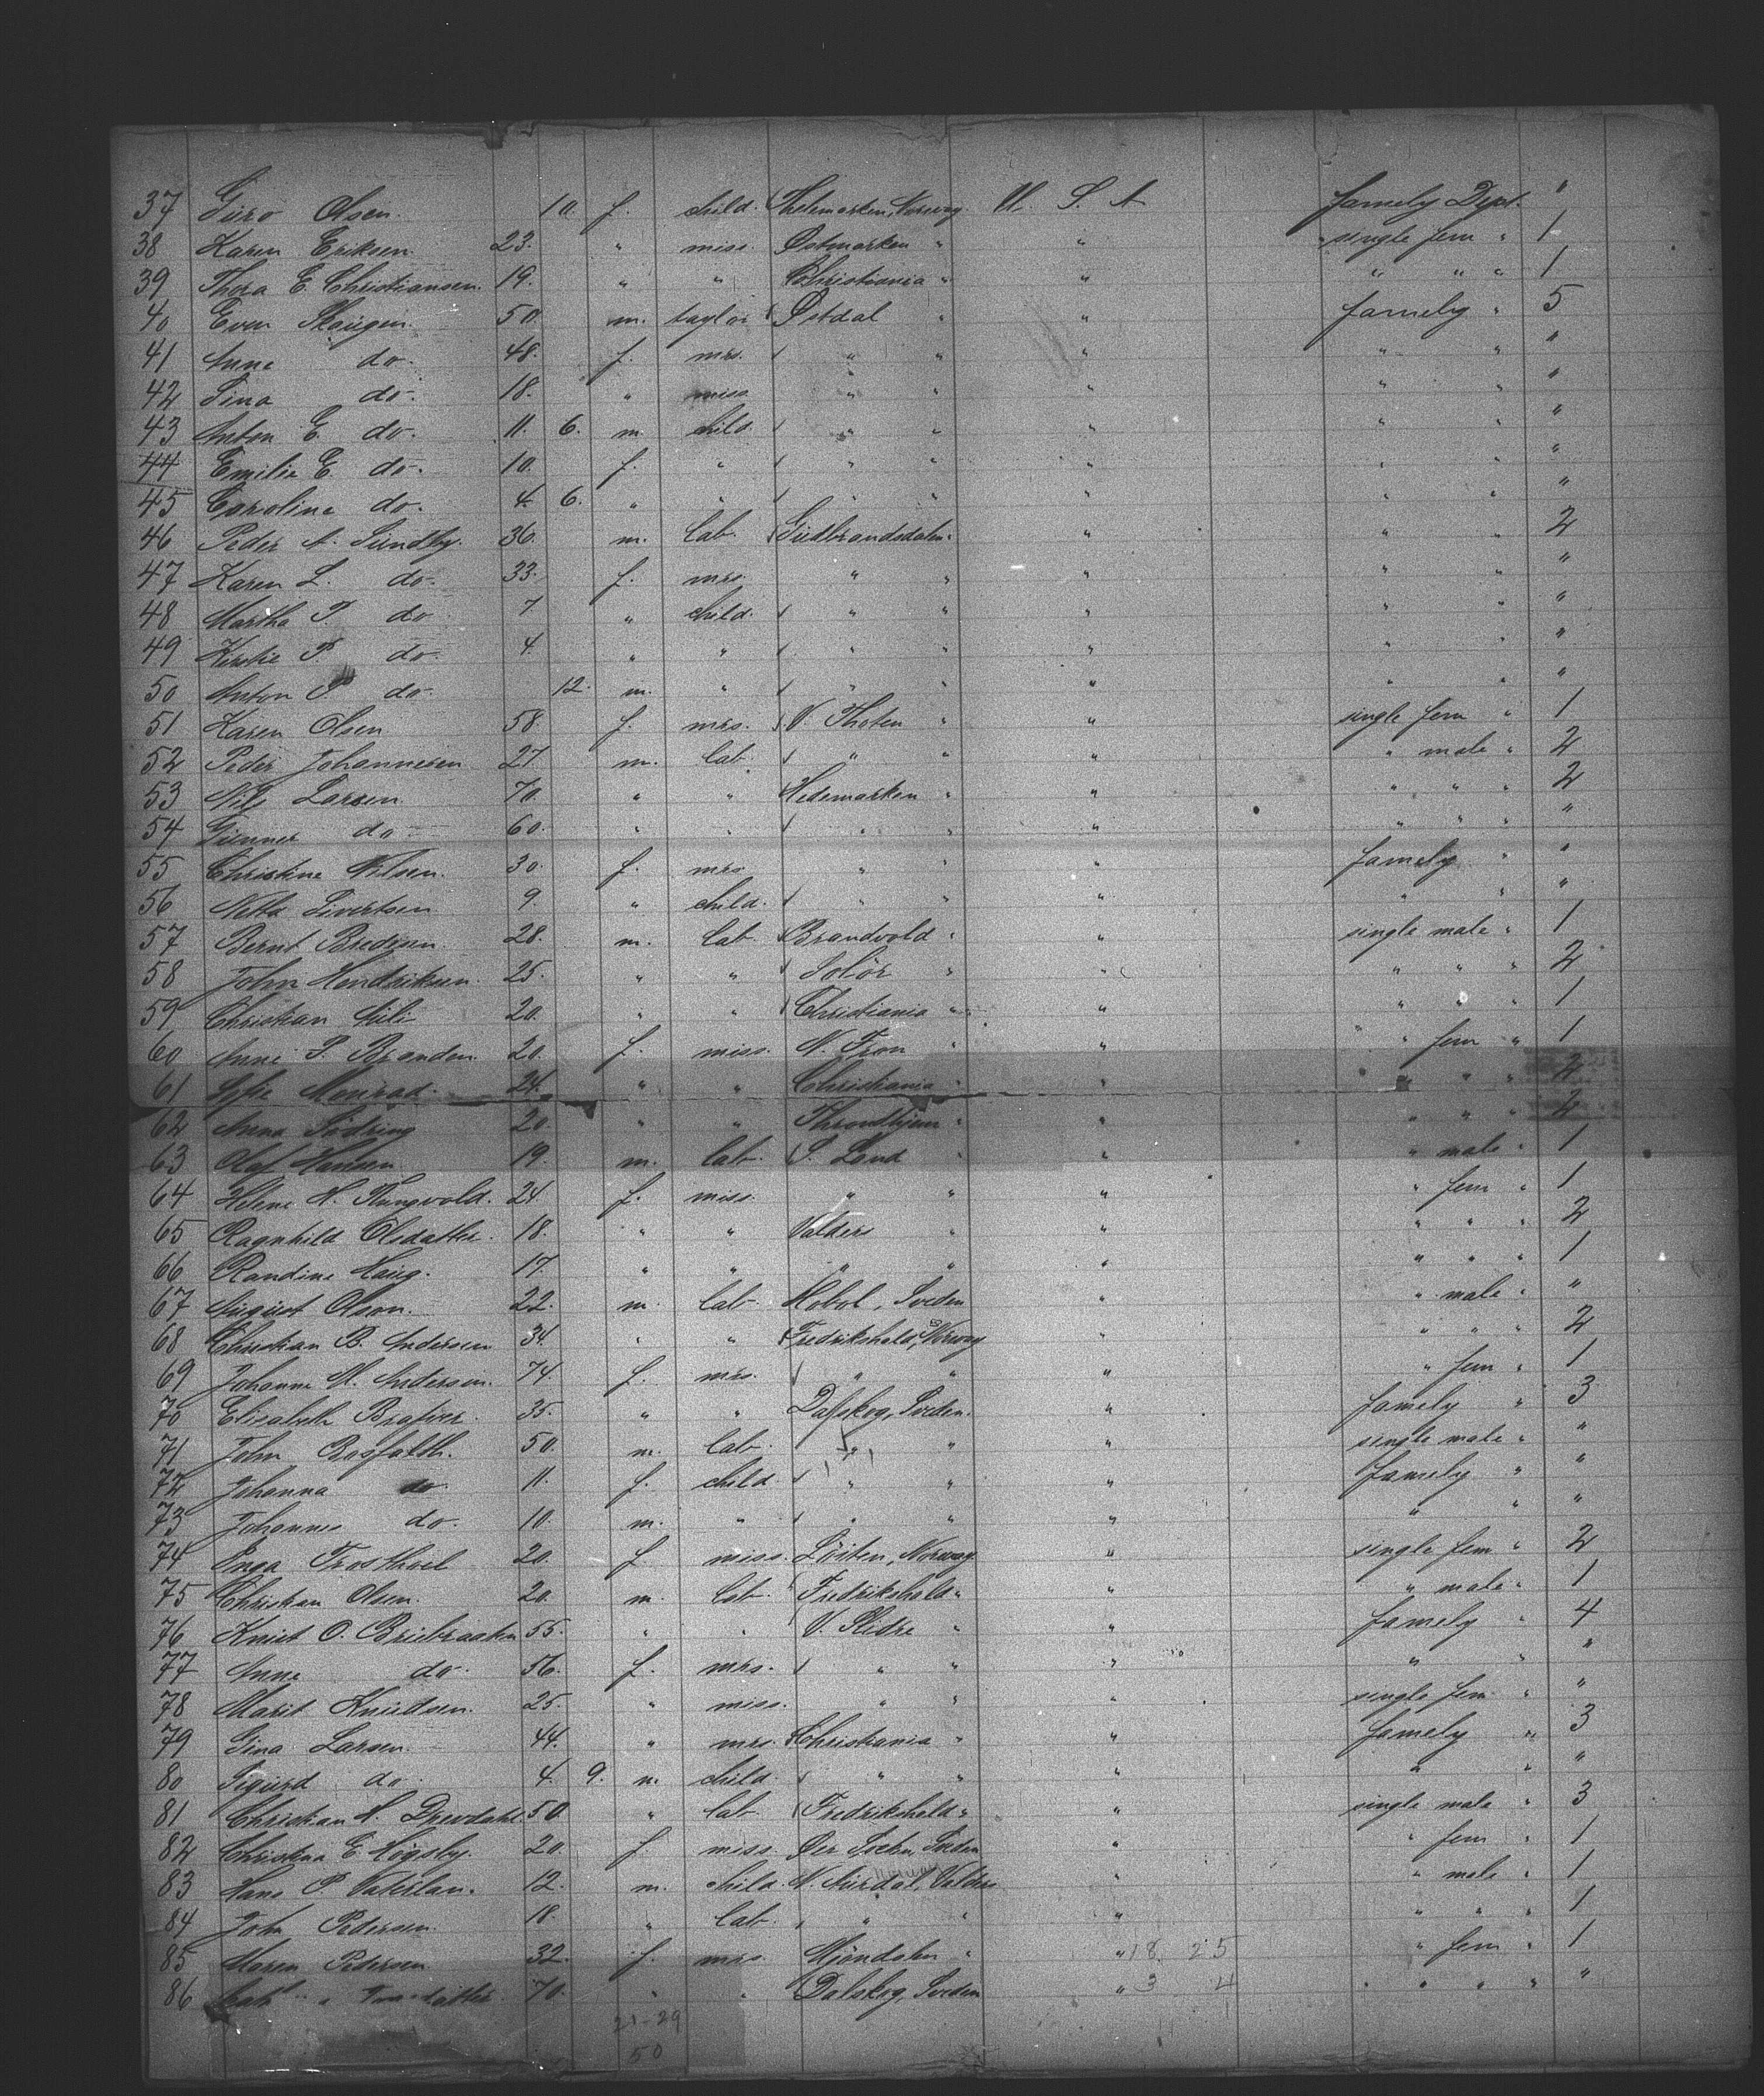 37 Guro Olsen. 10. f. child. Thelemarken, Norway U. S. A famely Dept. "
38 Karen Eriksen. 23. " miss. Østmarken " " " single fem " 1
39 Thora E. Christiansen. 19. " " Christiania " " " " " 1
40 Even Skaugen. 50. m. taylor Østdal " " famely " 5
41 Anne do. 48. f. mrs. " " " " " "
42 Lina do. 18. " miss " " " " " "
43 Anton E. do. 11. 6. m. child. " " " " " "
44 Emilie E. do. 10. f. " " " " " " "
45 Caroline do. 4. 6. " " " " " " " "
46 Peder A. Sundby. 36. m. lab. Gudbrandsdalen " " " 2
47 Karen L. do. 33. f. mrs. " " " " " "
48 Martha P. do 7 " child. " " " " " "
49 Kirstie P. do. 4. " " " " " " " "
50 Anton P do. 12. m. " " " " " " "
51 Karen Olsen 58. f. mrs. V. Thoten " " single fem " 1
52 Peder Johannesen 27. m. lab. " " " " male " 2
53 Nils Larsen. 70. " " Hedemarken " " " " " 2
54 Gunner do. 60. " " " " " " " " "
55 Christine Nilsen. 30. f. mrs. " " " famely " "
56 Netta Sivertsen 9. " child. " " " " " "
57 Bernt Bredesen 28. m. lab. Brandvold " " single male " 1
58 John Hendriksen. 25. " " Solör " " " " " 2
59 Christian 20. " " Christiania " " " " " 1
60 Anne P. Branden. 20. f. miss. N. Fron " " " fem " 1
61 Sofie Monrad. 24. " " Christiania " " " " " 2
62 Anna Södring 20. " " Throndhjem " " " " " 2
63 Olaf Hansen 19. m. lab. S. Land " " " male " 1
64 Helene N. Tungvold. 24. f. miss. " " " " fem " 1
65 Ragnhild Olsdatter. 18. " " Valders " " " " " 2
66 Randine Haug. 17. " " " " " " " " 1
67 August Olson. 22. m. lab. Hobol, Sveden " " male " "
68 Christian B. Andersen 34. " " Fredrikshald, Norway " " " " 2
69 Johanne M. Andersen. 74. f. mrs. " " " " fem " 1
70 Elisabeth 35. " " Dalskog, Sveden. " famely " 3
71 John 50. m. lab. " " " single male " "
72 Johanna do. 11. f. child " " " famely " "
73 Johannes do. 10. m. " " " " " " "
74 Inga 20. f. miss. Löiten, Norway " single fem " 2
75 Christian Olsen. 20. m. lab. Fredrikshald " " " male " 1
76 Knut O. Briebraaten 55. " " V. Slidre " " famely " 4
77 Anne do. 56. f. mrs. " " " " " "
78 Marit Knudsen. 25. " miss. " " " single fem " "
79 Gina Larsen. 44. " mrs. Christiania " " famely " 3
80 Sigurd do. 4. 9. m. child. " " " " " "
81 Christian N. Drevdahl. 50. " lab. Fredrikshald " " single male " 3
82 Christina E. Högsby. 20. f. miss. Sveden " " fem " 1
83 Hans P. 12. m. child. N. Aurdal, Valders " " male " 1
84 John Pedersen. 18. " lab. " " " " " " 1
85 Maren Pedersen 32. f. mrs. Mjöndalen " " 18. 25 " fem " 1
86 70. " " Dalskog, Sveden " 3 4 " " " "
21-29
50